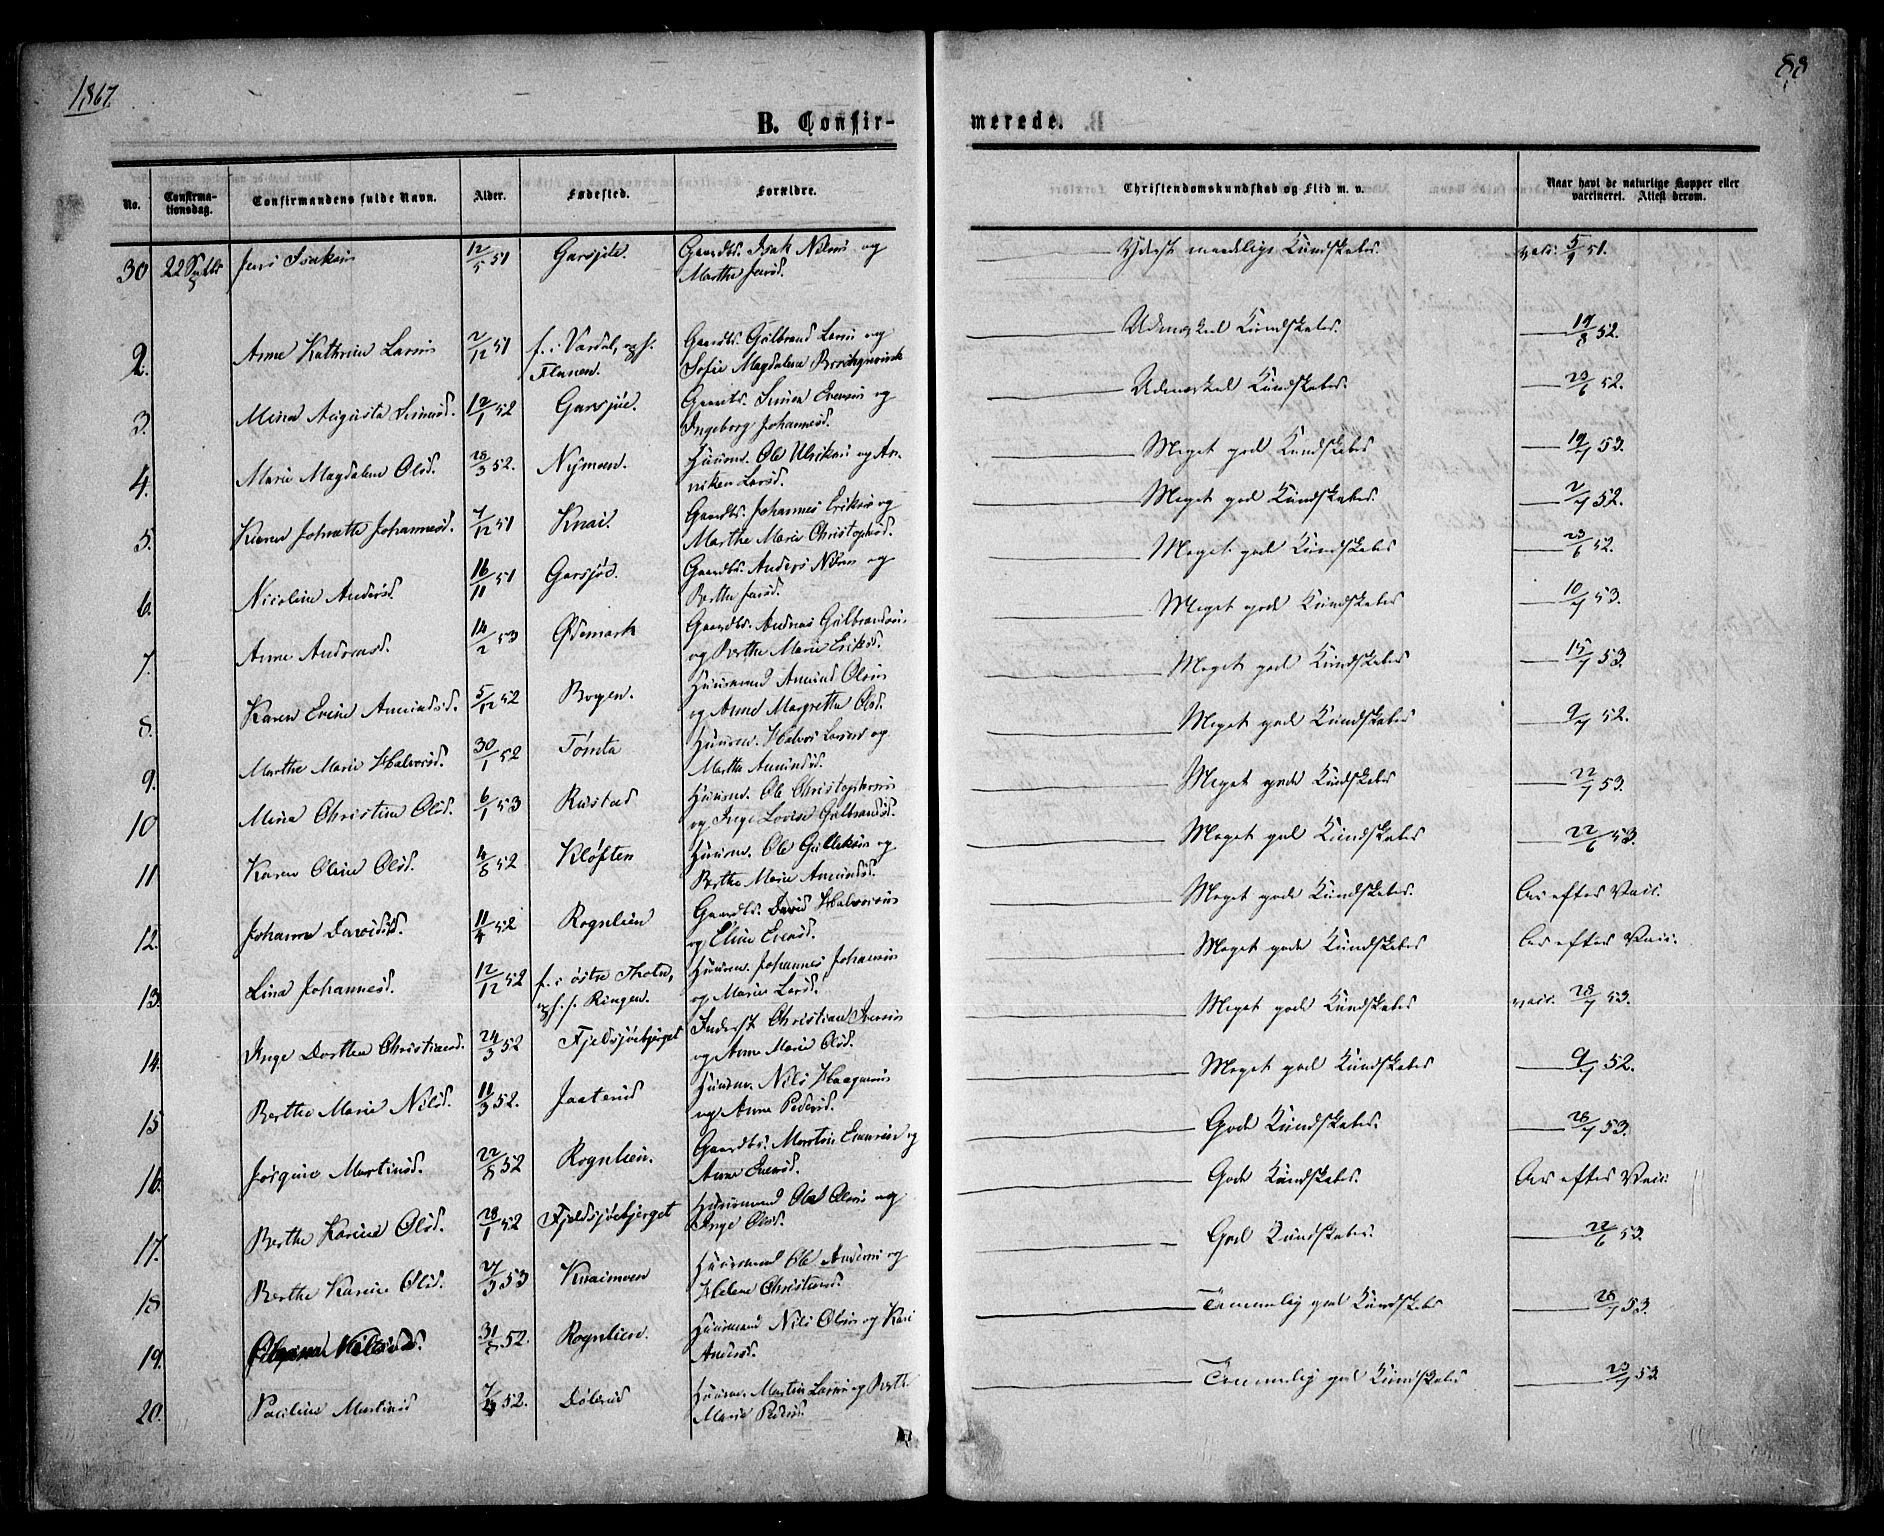 1867
88
B. Confir-
merede.
No.
Confirma-
tionsdag.
Confirmandens fulde Navn.
Alder.
Fødested.
Forældre.
Christendomskundskab og Flid m. v.
Naar havt de naturlige Kopper eller
vaccineret. Attest derom.
30 22 Septbr Jens Isaksen 12/5 51 Garsjøe. Gaardbr. Isak Nilsen og
Marthe Jensd. vac. 5/1 51.
2. Anne Kathrine Larsen 2/12 51 f. i Vardal, og f. Gaardbr. Gulbrand Larsen og
Sofie Magdalena Udmærket Kundskaber. 52.
3. Mina Augusta Simensd. 12/1 52 Garsjøe. Gaardbr. Simen Evensen og
Ingeborg Johannesd. Udmærket Kundskaber. 23/6 52.
4. Marie Magdalene Olsd. 28/3 52. Nymoen. Huusm. Ole Ulriksen og An-
niken Larsd. Meget god Kundskaber 53.
5. Karen Johnette Johannesd. 7/12 51 Knai. Gaardbr. Johannes Eriksen og
Marthe Marie Christophersd. Meget god Kundskaber. 52.
6. Nicoline Andersd. 16/11 51 Garsjøe. Gaardbr. Anders Nilsen og
Berthe Jensd. Meget gode Kundskaber 23/6 52.
7. Anne Andreasd. 14/2 53 Ødemark Gaardbr. Andreas Gulbrandsen
og Berthe Marie Eriksd. Meget gode Kundskaber 10/7 53.
8. Karen Eveline Amundsd. 5/12 52 Bogen. Huusmand Amund Olsen
og Anne Margrethe Olsd. Meget god Kundskaber 15/7 53.
9. Marthe Marie Halvorsd. 30/1 52 Tømta Huusm. Halvor Larsen og
Marthe Amundsd. Meget god Kundskaber 9/7 52.
10 Mina Christine Olsd. 6/1 53 Rustad Huusm. Ole Christophersen
og Inge Lovise Gulbrandsd. Meget gode Kundskaber 22/7 53.
11 Karen Oline Olsd. 52 Kløften Huusm. Ole Gulleksen og
Berthe Marie Amundsd. Meget god Kundskaber 22/6 53.
12. Johanne Davidsd. 11/4 52 Rognlien Gaardbr. David Halvorsen
og Eline Evensd. Meget gode Kundskaber. Ar efter Vacc.
13. Lina Johannesd. 12/12 52 f. i østre Tholn,
og f. s. Ringen. Huusm. Johannes Johansen
og Marie Larsd. Meget gode Kundskaber Ar efter Vacc.
14. Inge Dorthea Christiansd. 24/3 52 Fjeldsjøebjerget Inderst Christian Iversen
og Anne Marie Olsd. Meget gode Kundskaber vacc. 28/7 53.
15 Berthe Marie Nilsd. 11/3 52. Jaaterud Huusm. Nils Haagensen
og Anne Pedersd. Meget god Kundskaber 9/7 52.
16. Jørgine Martinsd. 22/8 52 Rognlien. Gaardbr. Martin Evensen og
Anne Evensd. Gode Kundskaber. 28/7 53.
17. Berthe Karine Olsd. 28/1 52 Fjeldsjøebjerget Huusmand Ole Olsen og
Inge Olsd. Gode Kundskaber. Ar efter Vacc.
18 Berthe Karine Olsd. 27/3 53 Knaimoen Huusmand Ole Andersen og
Helene Christiansd. God Kundskaber. 22/6 53.
19. Nilsd. 31/8 52. Rognlien. Huusmand Nils Olsen og Kari
Andersd. Temmelig god Kundskaber 28/7 53.
20. Martinsd 52. Dølerud Huusm. Martin Larsen og Berthe
Marie Pedersd. Temmelig god Kundskaber 23/7 53